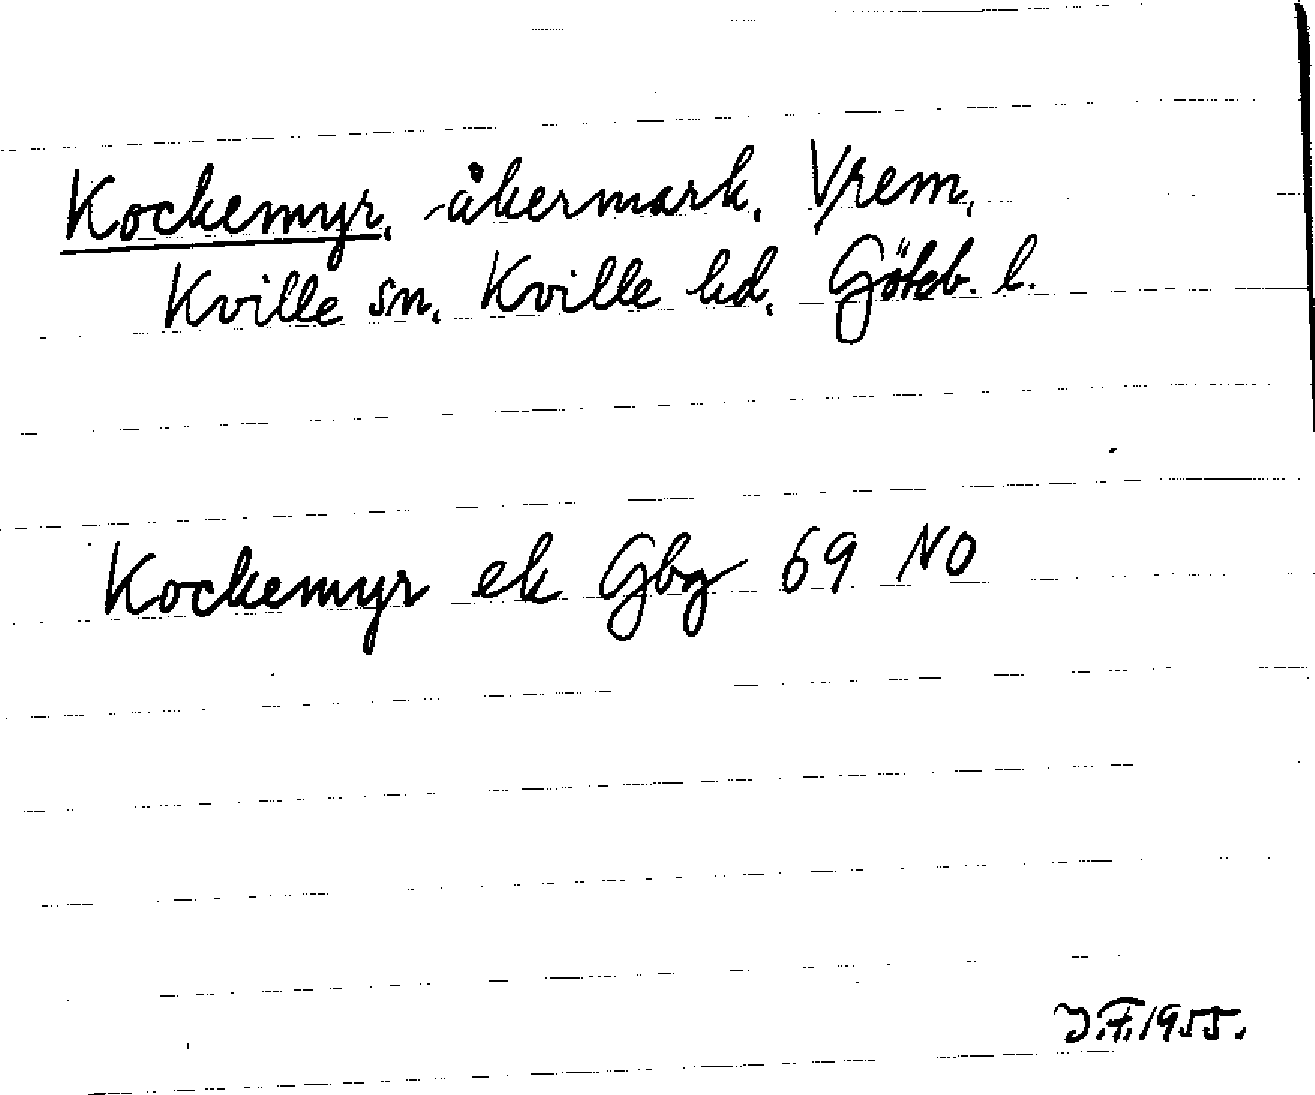 Kockemyr, åkermark, Vrem,
Kville sn, Kville hd, Göteb. l.
Kockemyr ek Gbg 69 NO
J.F. 1955.